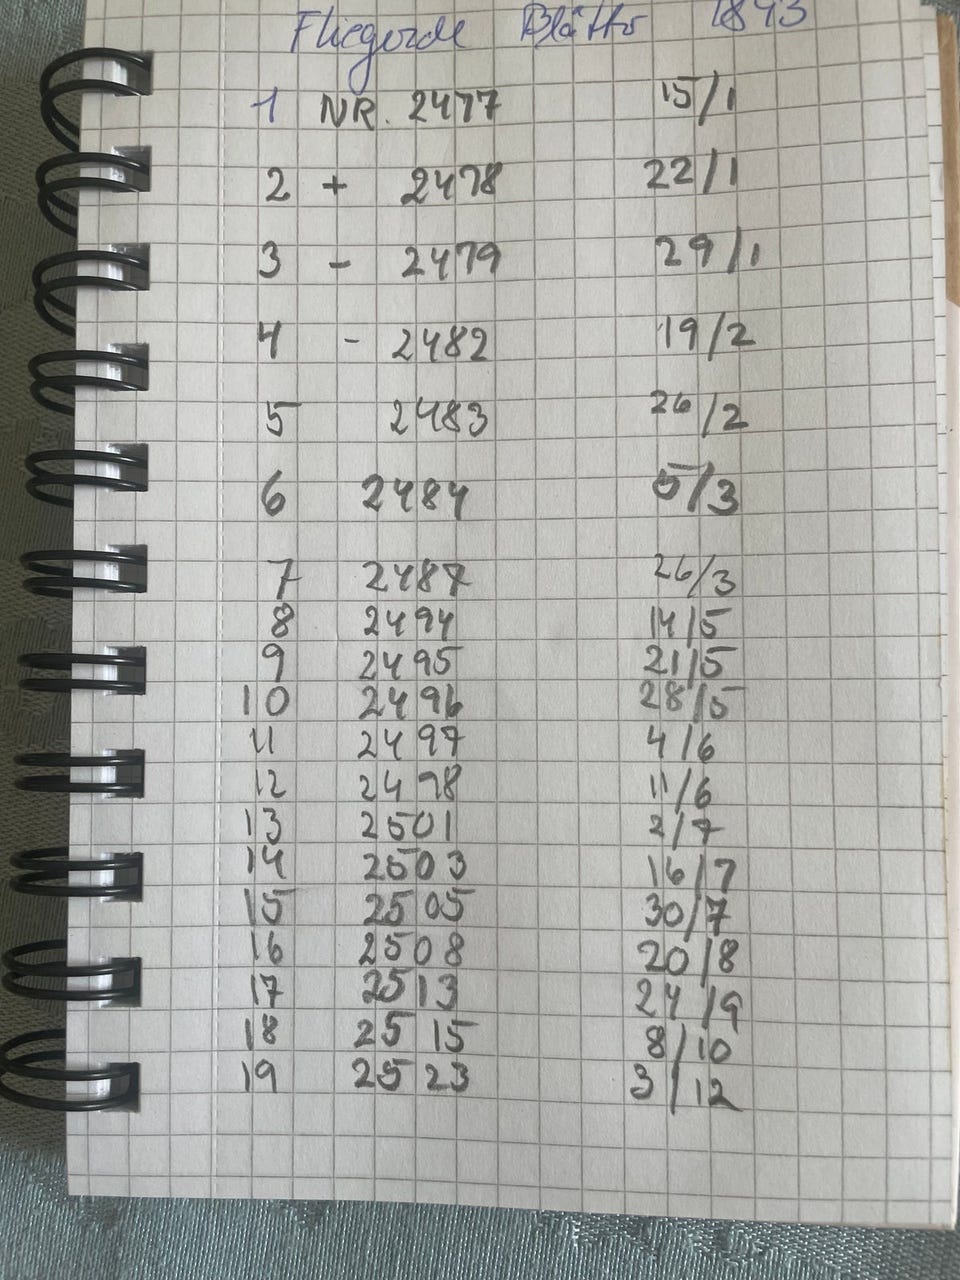 Fliegende Blätter 1893
1 NR. 2477 15/1
2 + 2478 22/1
3 - 2479 29/1
4 - 2482 19/2
5 2483 26/2
6 2484 5/3
7 2487 26/3
8 2494 14/5
9 2495 21/5
10 2496 28/5
11 2497 4/6
12 2498 11/6
13 2501 2/7
14 2503 16/7
15 2505 30/7
16 2508 20/8
17 2513 24/9
18 2515 8/10
19 2523 3/12